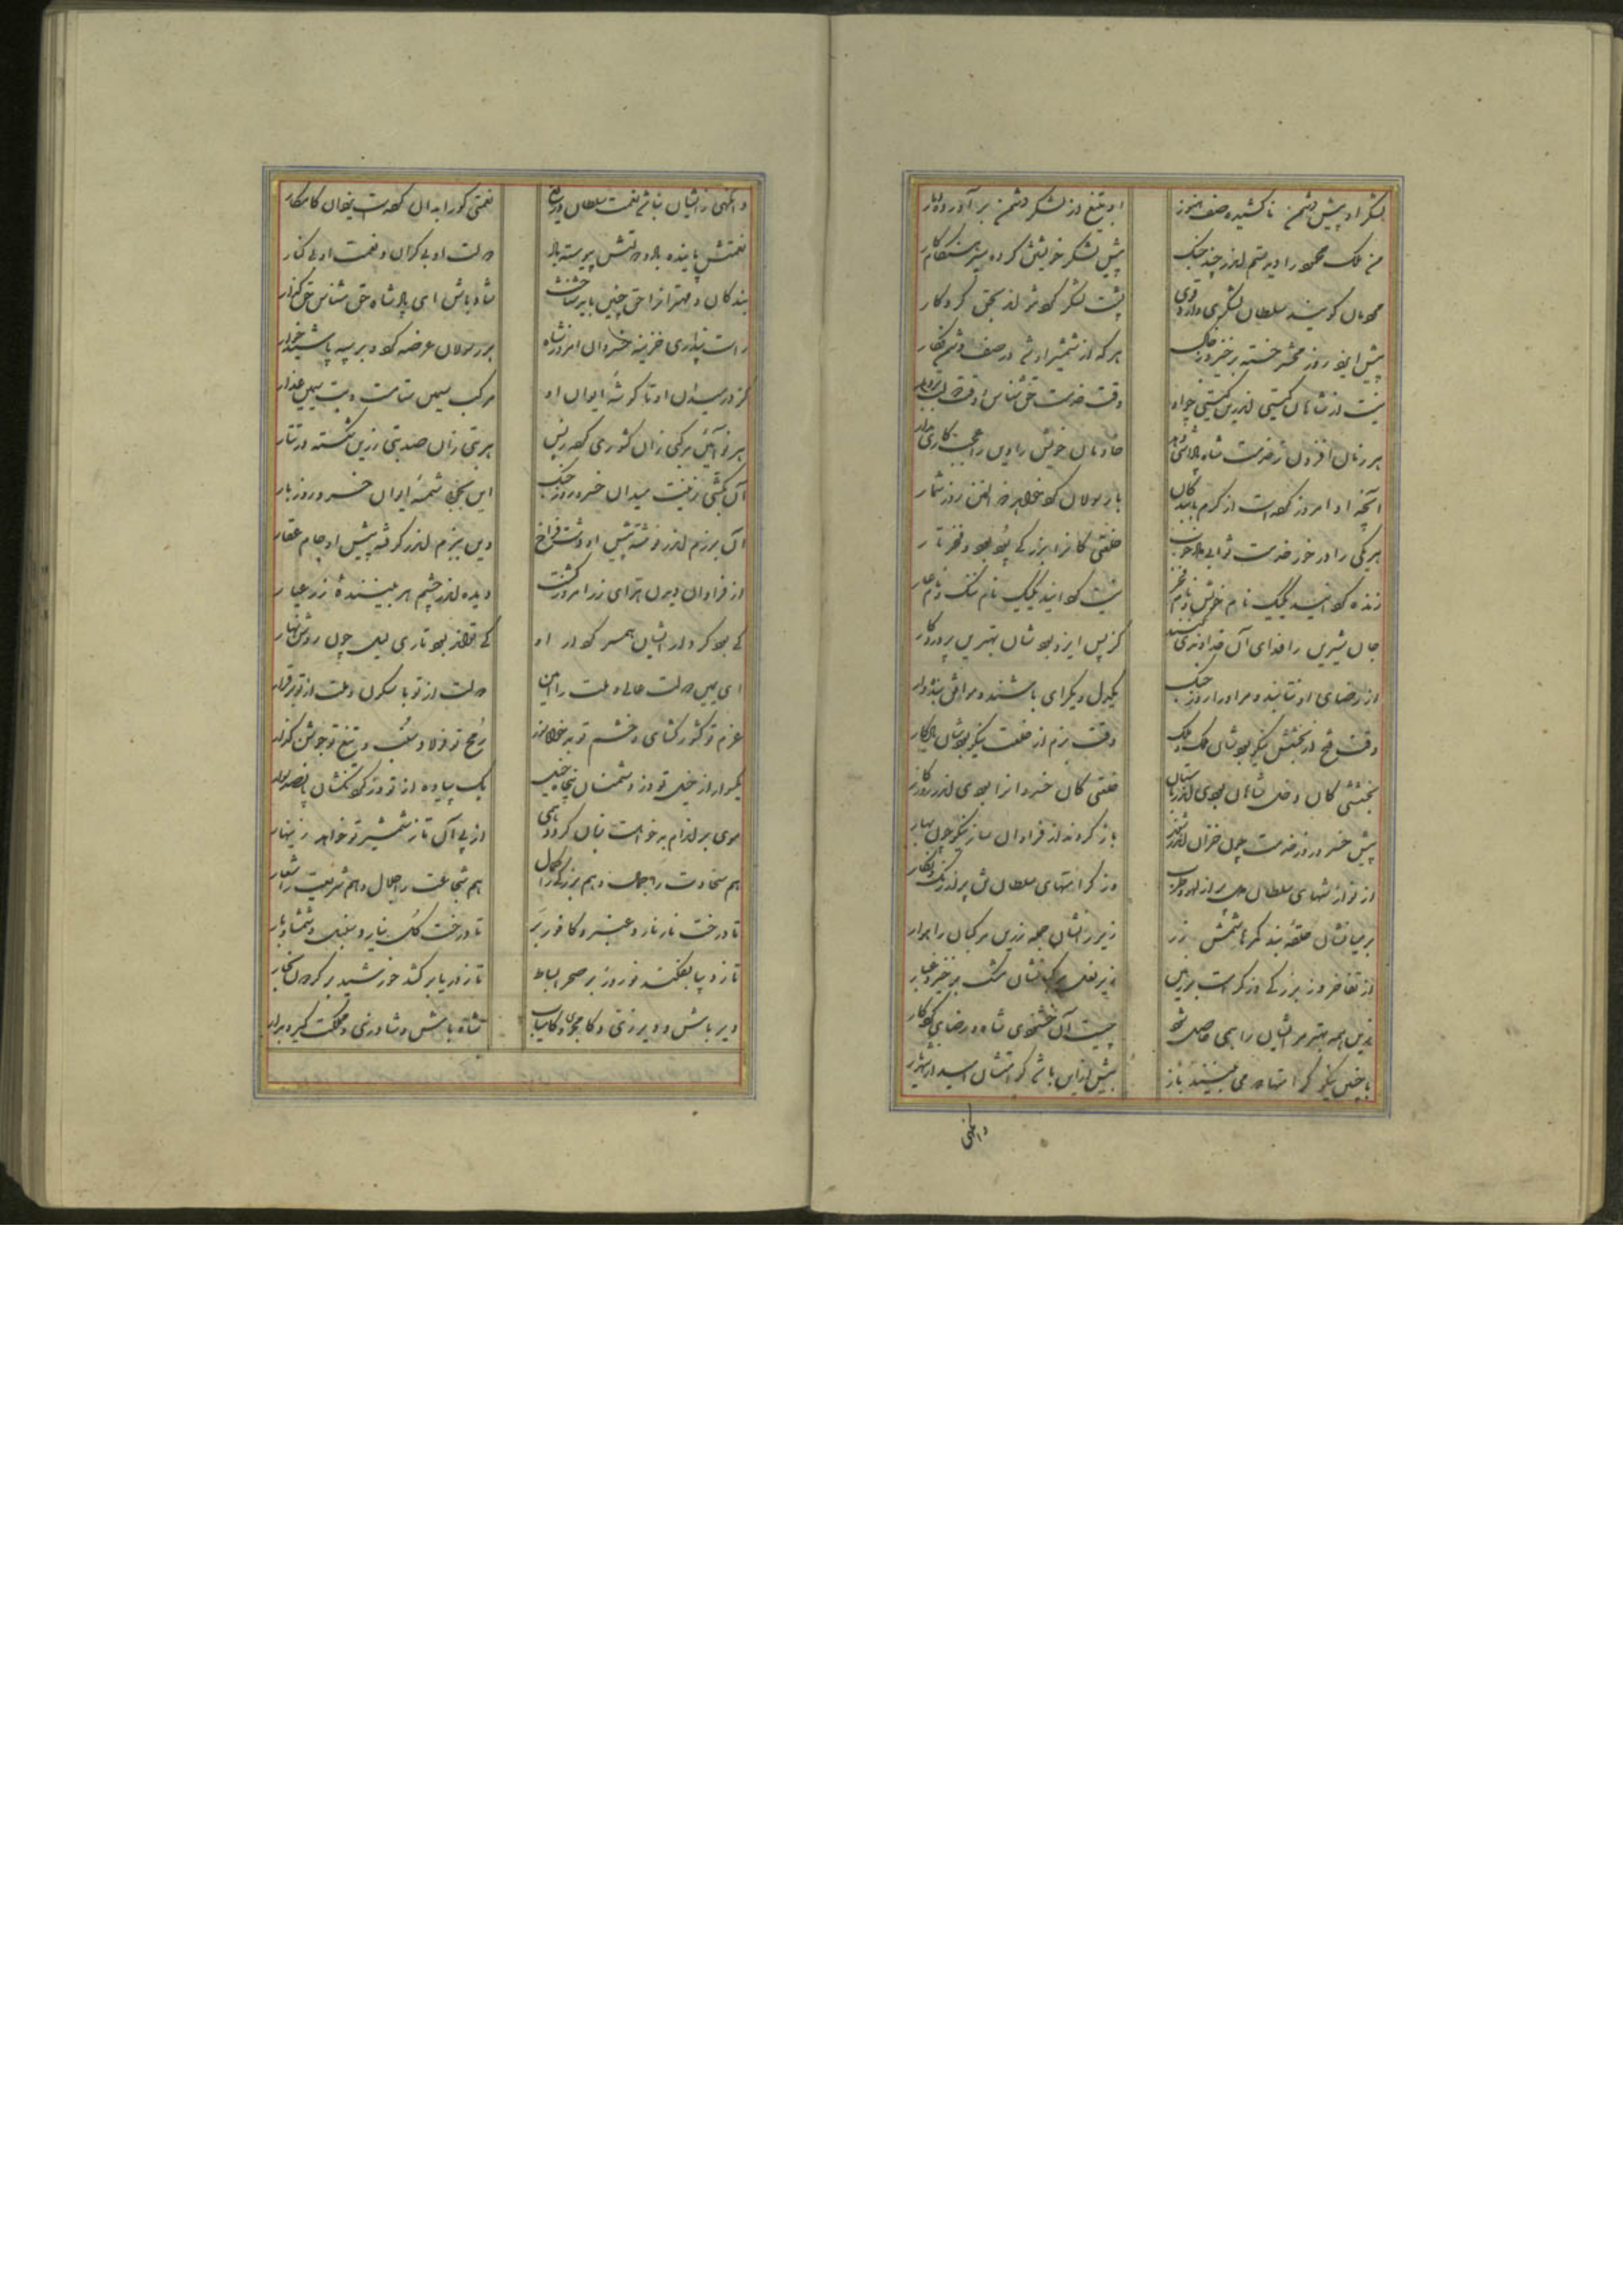 لشکر او پیش دشمن ناکشیده صف هنوز او بتیغ از لشکر دشمن برآورده دمار
من ملک محمود را دیدستم اندر چند جنگ پیش لشکر خویشتن کرده سپر هنگام کار
مردمان گویند سلطان لشکری دارد قوی پشت لشکر اوست اندر کردگار
پیش ایزد روز محشر خسته برخیزد ز خاک هر که از شمشیر او شد در صف دشمن فکار
نیست از شاهان گیتی اندرین گیتی چو او وقت خدمت حق شناس و وقت
هر زمان افزون ز خدمت شاه پاداشی دهد خادمان خویش را وین را عجب کاری مدار
آنچه او امروز کرده است از کرم با بندگان با رسولان کرد خواهد ذوالمنن روز شمار
هر یکی را در خور خدمت ثوابی خلعتی کانرا بزرگی پود بود و فخر تار
زنده کردانید یکیک نام خویش و نام فخر نیست کردانید یکیک نام ننگ و نام عار
جان شیرین را فدای آن خداوندی کنند کز پس ایزد بود شان بهترین پروردگار
از رضای او نتابند و مر او را روز جنگ یکدل و یکرای باشند و موافق بنده وار
وقت فتح از بخشش نیکو بود شان ملک و مال وقت بزم از خلعت نیکو بود شان یادگار
بخششی کان دخل شاهان بودی اندر باستان خلعتی کان خسروانرا بودی اندر روزگار
پیش خسرو روز خدمت چون خزان اندر شدند باز کردند از فراوان ساز نیکو چون بهار
از نوازشهای سلطان دل پر از لهو و طرب وز کرامتهای سلطان تن پر از رنگ و نگار
بر میانشان حلقه بند کمرها شمش زر زیر رانشان جمله زرین مرکبان راهوار
از تفاخر وز بزرگی وز کرامت بر زمین زیر نعل مرکبانشان مشک برخیزد غبار
زین همه بهتر مر ایشان را همی حاصل شود چیست آن خشنودی شاه و رضای کردگار
با چنین نیکو کرامتها که می بینند باز بیش ازین باشد کرامتشان امید از شهریار
وانگهی
وانگهی زایشان نباشد نعمت سلطان دریغ نعمتی کو را بدان کرده است یزدان کامکار
نعمتش پاینده باد و دولتش پیوسته باد دولت او بی کران و نعمت او بی کنار
بندگان و مهترانرا حق چنین باید شناخت شاد باش ای پادشاه حق شناس حق گذار
راست پنداری خزینه خسروان امروز شاه بر رسولان عرضه کرد و بر سپه پاشید خوار
کز در میدان او تا گوشه ایوان او مرکب سیمین ستامست و بت سیمین عذار
هر نوآئین مرکبی زان کشوری کرده زبس هر بتی زان صد بتی زرین شکسته در تتار
آن یکی زینت میدان خسرو روز جنگ این بتی شمسه ایوان خسرو روز بار
آن برزم اندر نوشته پیش او دشت فراخ وین ببزم اندر گرفته پیش او جام عقار
از فراوان دیدن هرای زر امروز گشت دیده اندر چشم هر بیننده زر عیار
کی بود کردار ایشان همسر کردار او کی تواند بود تاری لیل چون روشن نهار
ای یمین دولت عالی و ملت را امین دولت از تو با سکون و ملت از تو برقرار
عزم تو کشور گشای و خشم تو بدخواه سوز رمح تو پولاد سنب و تیغ تو جوشن گذار
یکسوار از خیل تو وز دشمنان پنجاه خیل یک پیاده از تو وز گردنکشان پانصد سوار
موی بر اندام بدخواهت زبان گردد همی از پی آن تا ز شمشیر تو خواهد زینهار
هم سخاوت را جمال و هم بزرگی را کمال هم شجاعت را جلال و هم شریعت را شعار
تا درخت نار نارد عنبر و کافور بر تا درخت گل نیارد سنبل و شمشاد بار
تازه دیبا بفکند نوروز بر صحرا بساط تا ز دریا برکشد خورشید بر گردون بخار
دیر باش و دیر زی و کام جوی و کام یاب شاه باش و شاد زی و مملکت گیر و بدار